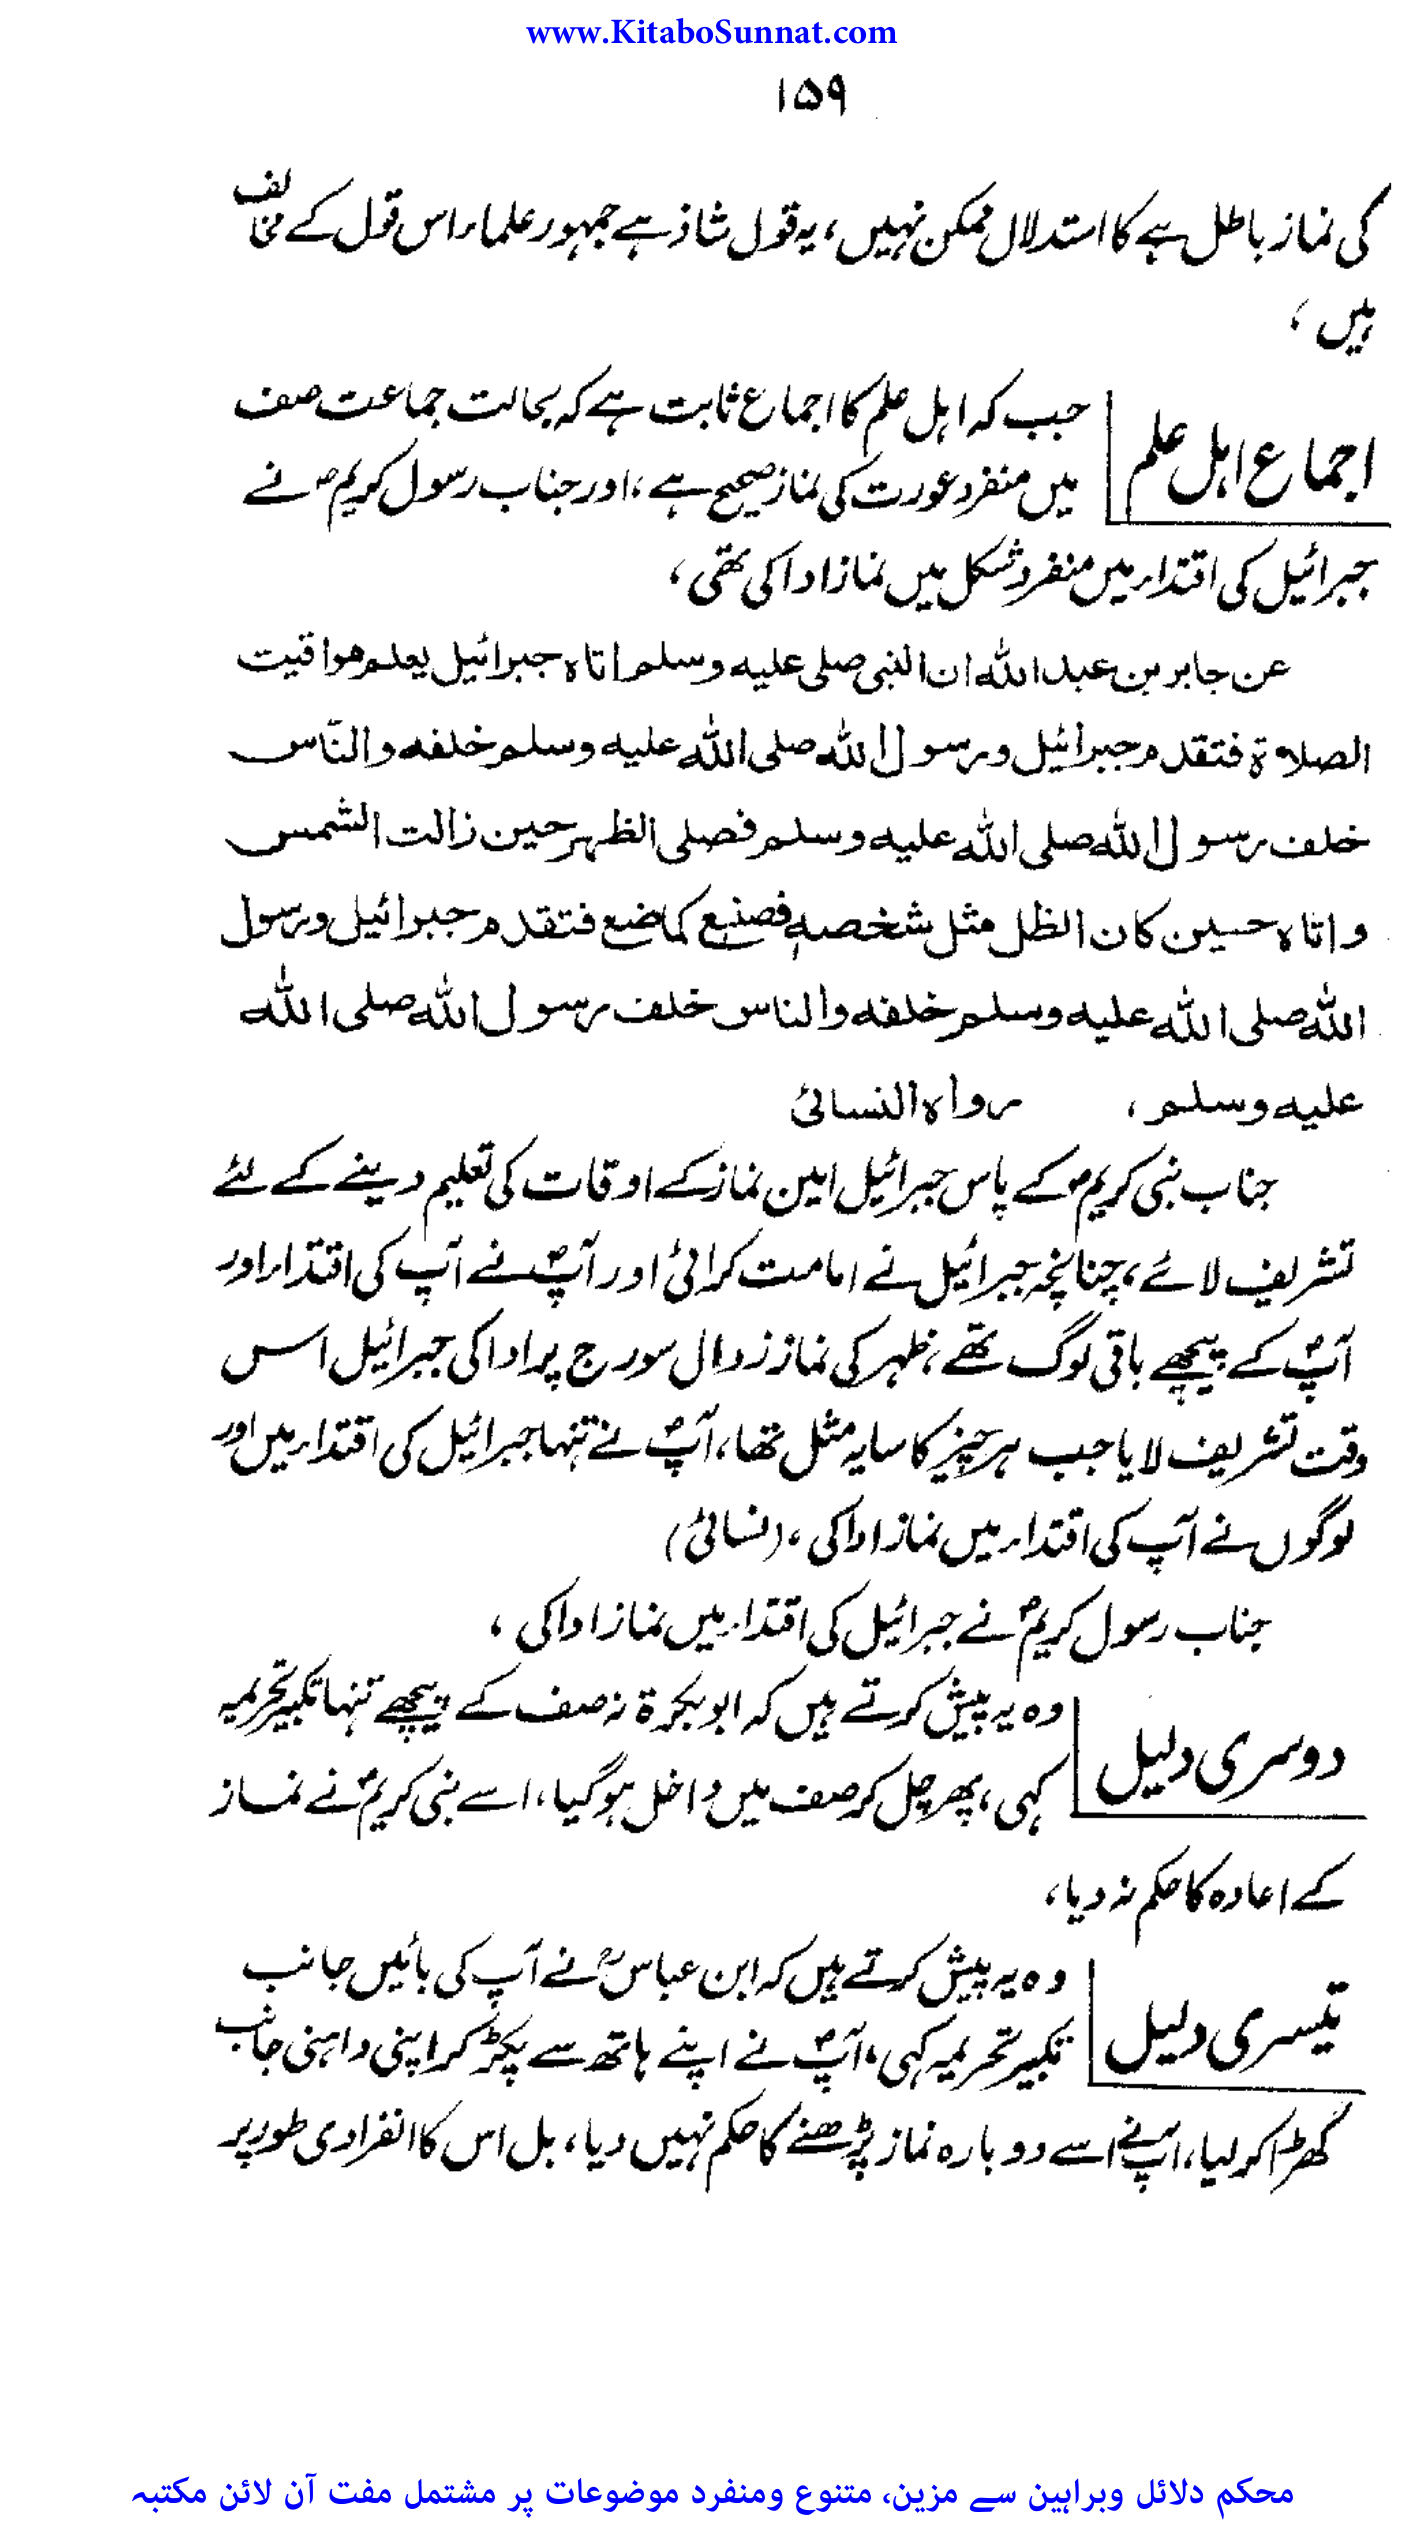 www.KitaboSunnat.com
۱۵۹
کی نماز باطل ہے کا استدلال ممکن نہیں، یہ قول شاذ ہے جمہور علماء اس قول کے مخالف
ہیں،
اجماع اہل علم
جب کہ اہل علم کا اجماع ثابت ہے کہ بحالت جماعت صف
میں منفرد عورت کی نماز صحیح ہے، اور جناب رسول کریمؐ نے
جبرائیل کی اقتداء میں منفرد شکل میں نماز ادا کی تھی،
عن جابر بن عبد اللہ ان النبی صلی علیہ وسلم اتاہ جبرائیل یعلم مواقیت
الصلاۃ فتقدم جبرائیل ورسول اللہ صلی اللہ علیہ وسلم خلفہ والنّاس
خلف رسول اللہ صلی اللہ علیہ وسلم فصلی الظہر حین زالت الشمس
واتاہ حسین کان الظل مثل شخصہ فصنع کما ضع فتقدم جبرائیل ورسول
اللہ صلی اللہ علیہ وسلم خلفہ والناس خلف رسول اللہ صلی اللہ
علیہ وسلم، رواہ النسائی
جناب نبی کریمؐ کے پاس جبرائیل امین نماز کے اوقات کی تعلیم دینے کے لئے
تشریف لائے، چنانچہ جبرائیل نے امامت کرائی اور آپؐ نے آپ کی اقتداء اور
آپؐ کے پیچھے باقی لوگ تھے، ظہر کی نماز زوال سورج پر ادا کی جبرائیل اس
وقت تشریف لایا جب ہر چیز کا سایہ مثل تھا، آپؐ نے تنہا جبرائیل کی اقتداء میں اور
لوگوں نے آپ کی اقتداء میں نماز ادا کی، (نسائی)
جناب رسول کریمؐ نے جبرائیل کی اقتداء میں نماز ادا کی،
دوسری دلیل
وہ یہ پیش کرتے ہیں کہ ابوبکرۃ نہ صف کے پیچھے تنہا تکبیر تحریمہ
کہی، پھر چل کر صف میں داخل ہو گیا، اسے نبی کریمؐ نے نماز
کے اعادہ کا حکم نہ دیا،
تیسری دلیل
وہ یہ پیش کرتے ہیں کہ ابن عباسؓ نے آپ کی بائیں جانب
تکبیر تحریمہ کہی، آپؐ نے اپنے ہاتھ سے پکڑ کر اپنی داہنی جانب
کھڑا کر لیا، آپ نے اسے دوبارہ نماز پڑھنے کا حکم نہیں دیا، بل اس کا انفرادی طور پر
محکم دلائل وبراہین سے مزین، متنوع ومنفرد موضوعات پر مشتمل مفت آن لائن مکتبہ